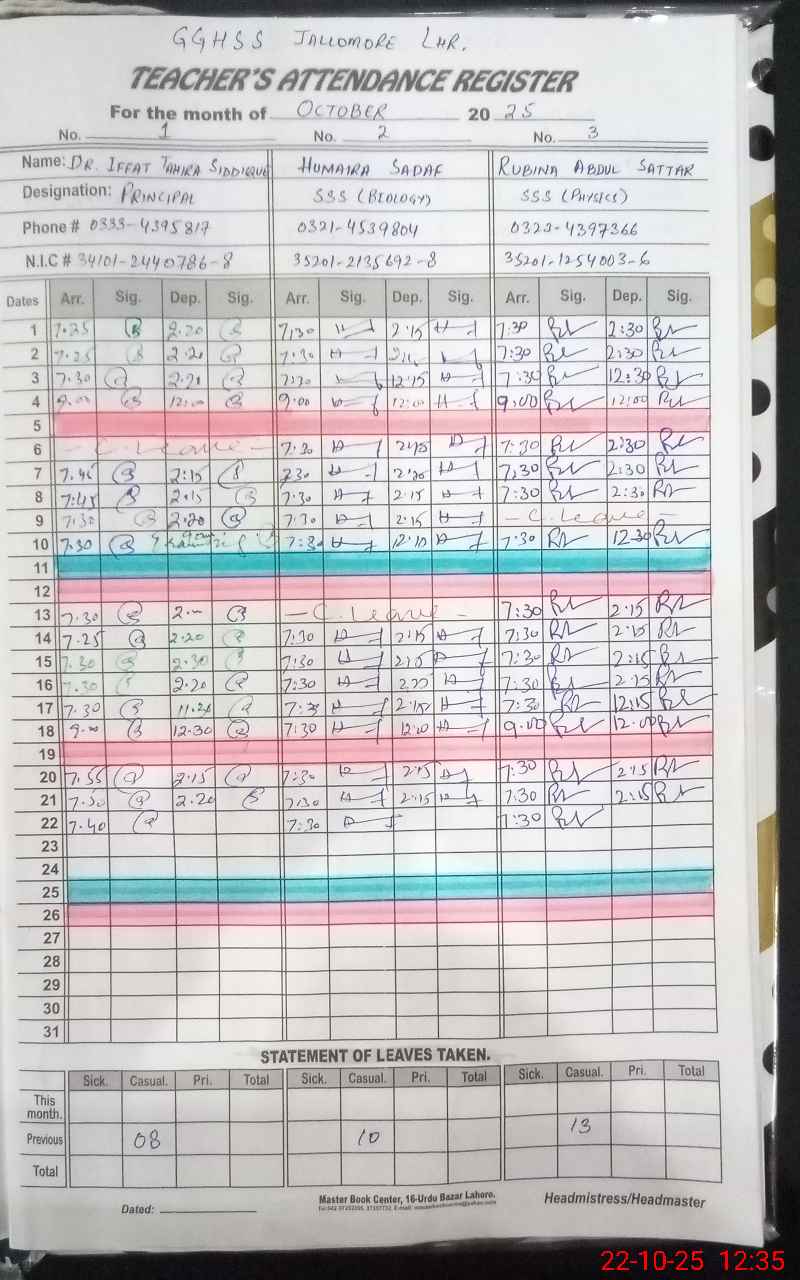 GGHSS JALLOMORE LHR.
TEACHER'S ATTENDANCE REGISTER
For the month of OCTOBER 2025
No. 1 No. 2 No. 3
Name: DR. IFFAT TAHIRA SIDDIQUE HUMAIRA SADAF RUBINA ABDUL SATTAR
Designation: PRINCIPAL SSS (BIOLOGY) SSS (PHYSICS)
Phone # 0333-4395817 0321-4539804 0323-4397366
N.I.C # 34101-2440786-8 35201-2135692-8 35201-1254003-6
Dates Arr. Sig. Dep. Sig. Arr. Sig. Dep. Sig. Arr. Sig. Dep. Sig.
1 7.25 2.20 7.30 2.15 7:30 2:30
2 7.25 2.20 7.30 7:30 2:30
3 7.30 2.20 7.30 12.15 7:30 12:30
4 9.00 12:00 9.00 12:00 9:00 12:00
5
6 - C. Leave - 7.30 2.15 7:30 2:30
7 7.45 2:15 7.30 2.20 7:30 2:30
8 7:45 2.15 7.30 2.15 7:30 2:30
9 7.30 2.20 7.30 2.15 - C. Leave -
10 7.30 7:30 12.10 7:30 12.30
11
12
13 7.30 2.- - C. Leave - 7:30 2:15
14 7.25 2.20 7:30 2:15 7:30 2:15
15 7.30 2.30 7:30 2:15 7:30 2:15
16 7.30 2.20 7:30 7:30 2:15
17 7.30 11.20 7:30 2.15 7:30 12:15
18 9.- 12.30 7:30 12:00 9:00 12:00
19
20 7.55 2.15 7:30 2:15 7:30 2:15
21 7.30 2.20 7:30 2:15 7:30 2:15
22 7.40 7:30 7:30
23
24
25
26
27
28
29
30
31
STATEMENT OF LEAVES TAKEN.
Sick. Casual. Pri. Total Sick. Casual. Pri. Total Sick. Casual. Pri. Total
This month.
Previous 08 10 13
Total
Dated:
Master Book Center, 16-Urdu Bazar Lahore.
Headmistress/Headmaster
22-10-25 12:35